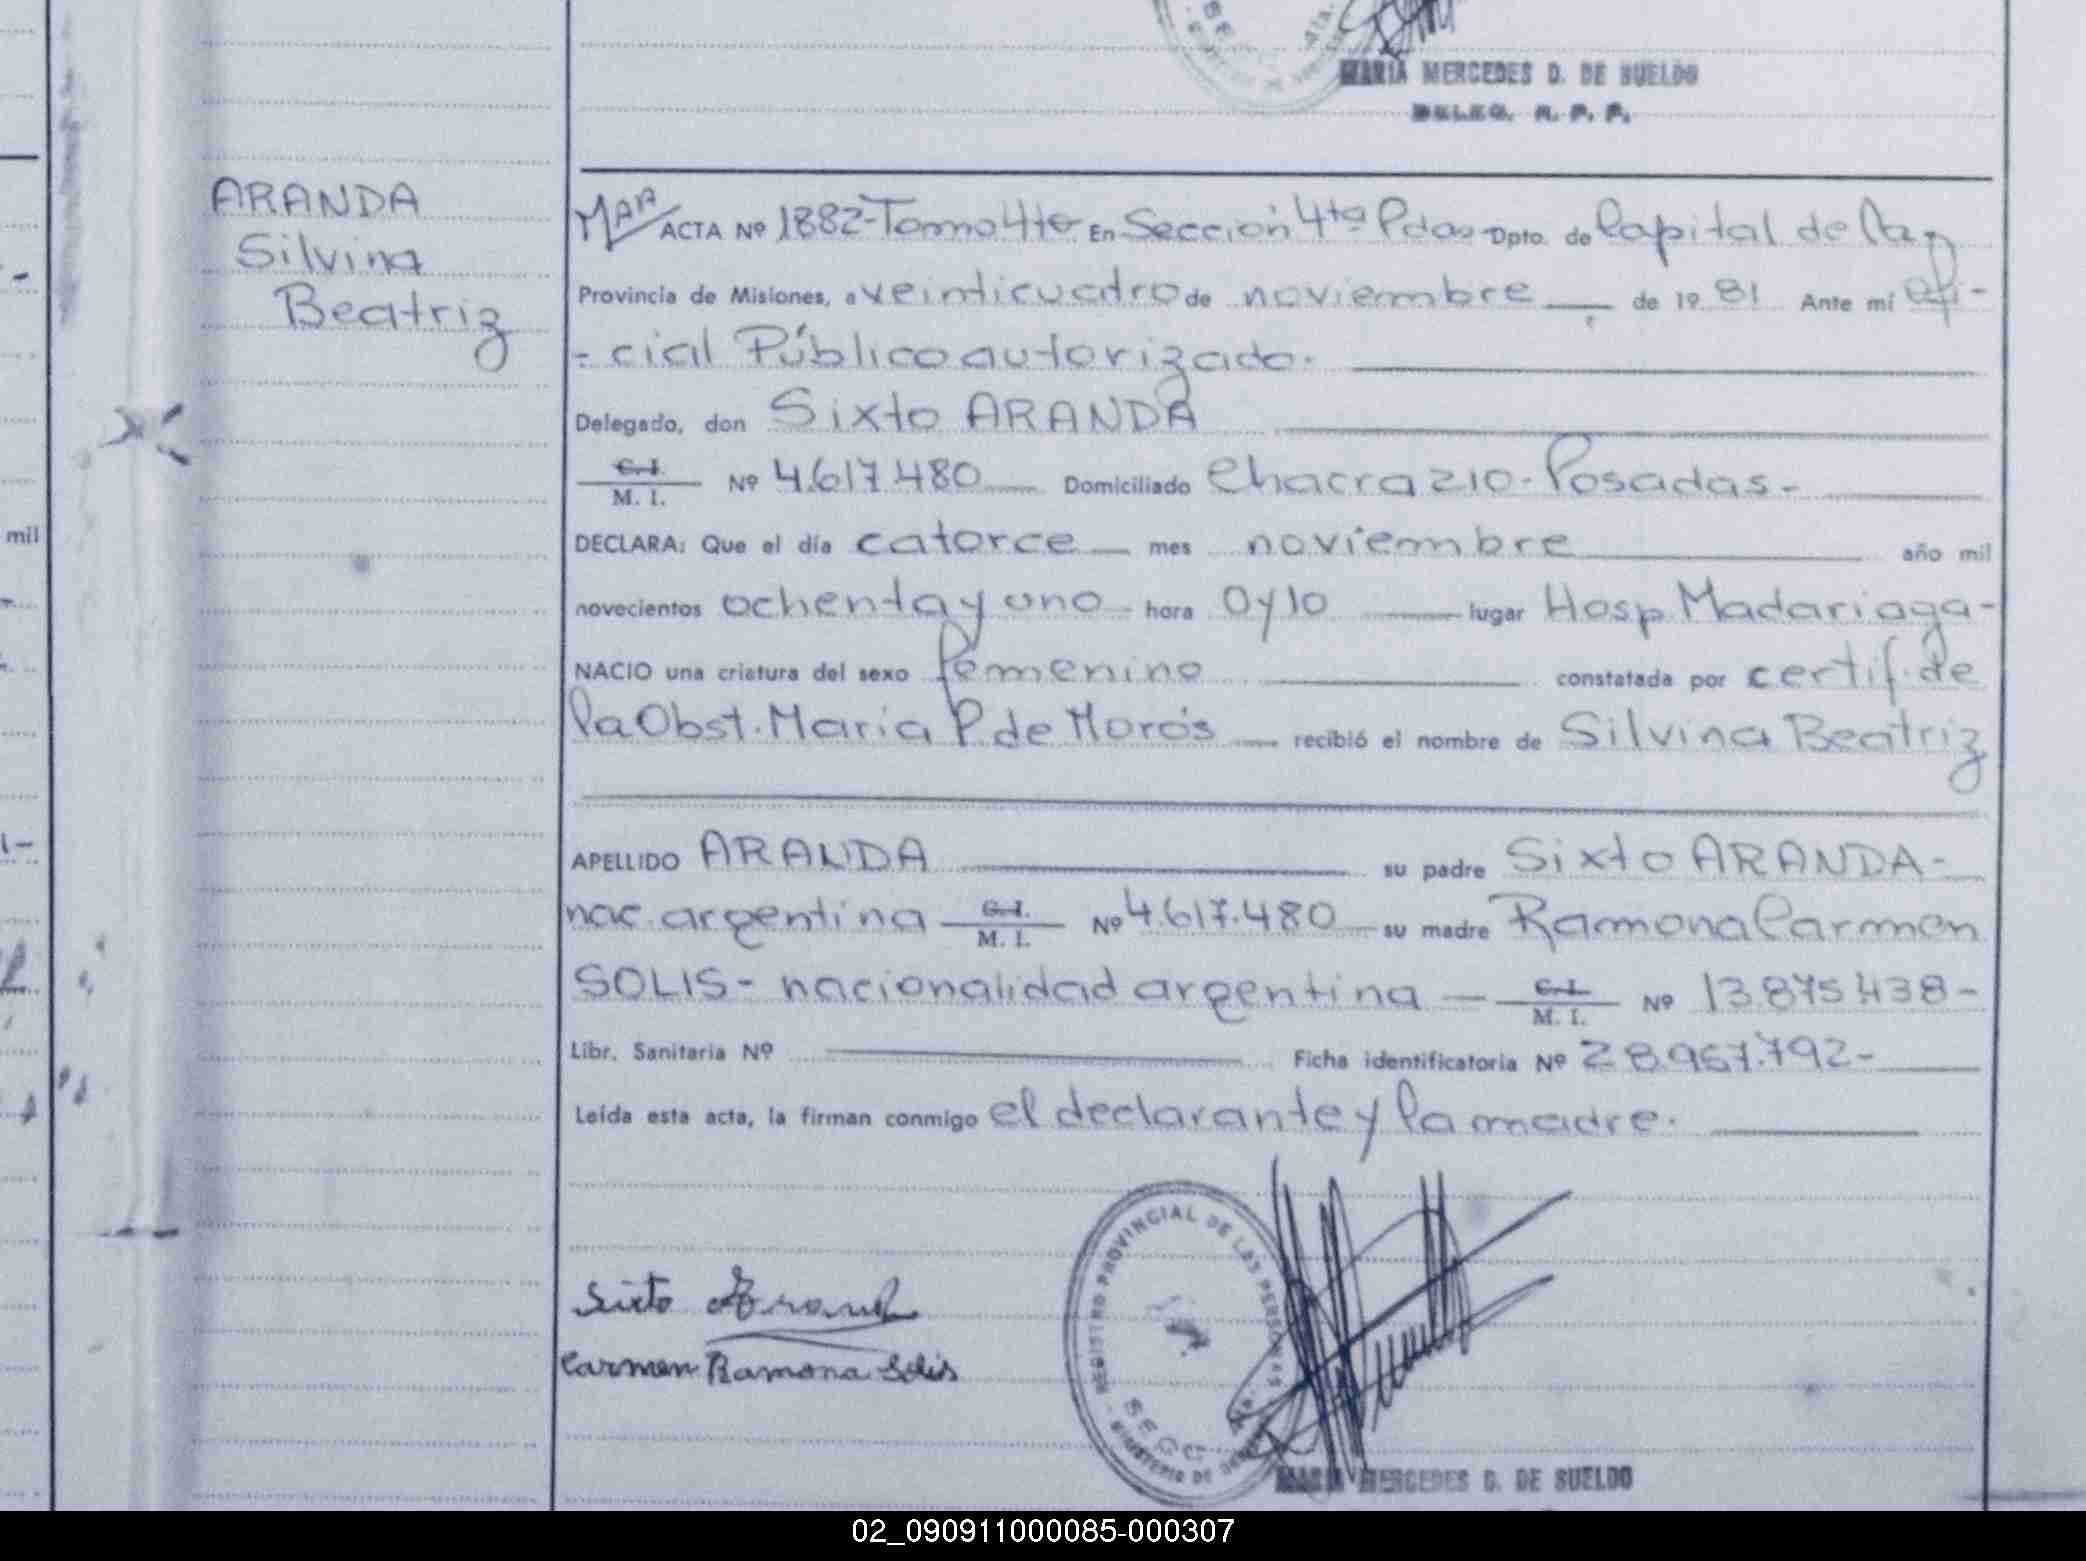 MARIA MERCEDES D. DE SUELDO
DELEG. R. P. P.
ARANDA
Silvina
Beatriz
ACTA Nº 1882-Tomo 4to En Sección 4ta Pdas Dpto. de Capital de la
Provincia de Misiones, a veinticuatro de noviembre de 19 81 Ante mí ofi-
-cial Público autorizado.
Delegado, don Sixto ARANDA
C. I.
M. I. Nº 4.617.480 Domiciliado Chacra 210-Posadas-
DECLARA: Que el día catorce mes noviembre año mil
novecientos ochenta y uno hora 0y10 lugar Hosp Madariaga-
NACIO una criatura del sexo femenino constatada por certif. de
la Obst. María P. de Morós recibió el nombre de Silvina Beatriz
APELLIDO ARANDA su padre Sixto ARANDA-
nac. argentina C. I. M. I. Nº 4.617.480 su madre Ramona Carmen
SOLIS- nacionalidad argentina C. I. M. I. Nº 13.875.438-
Libr. Sanitaria Nº Ficha identificatoria Nº 28.967.792-
Leída esta acta, la firman conmigo el declarante y la madre.
Sixto Aranda
Carmen Ramona Solis
REGISTRO PROVINCIAL DE LAS PERSONAS
MINISTERIO DE
MARIA MERCEDES D. DE SUELDO
mil
02_090911000085-000307